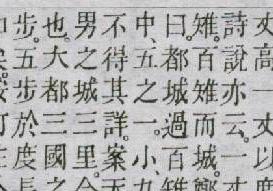 高一丈以度
詩說亦云一丈
雉百雉而城
曰都城過百雉
中五之一小九
不得其詳案
男之城三里
也大都三國之
步五步於度長